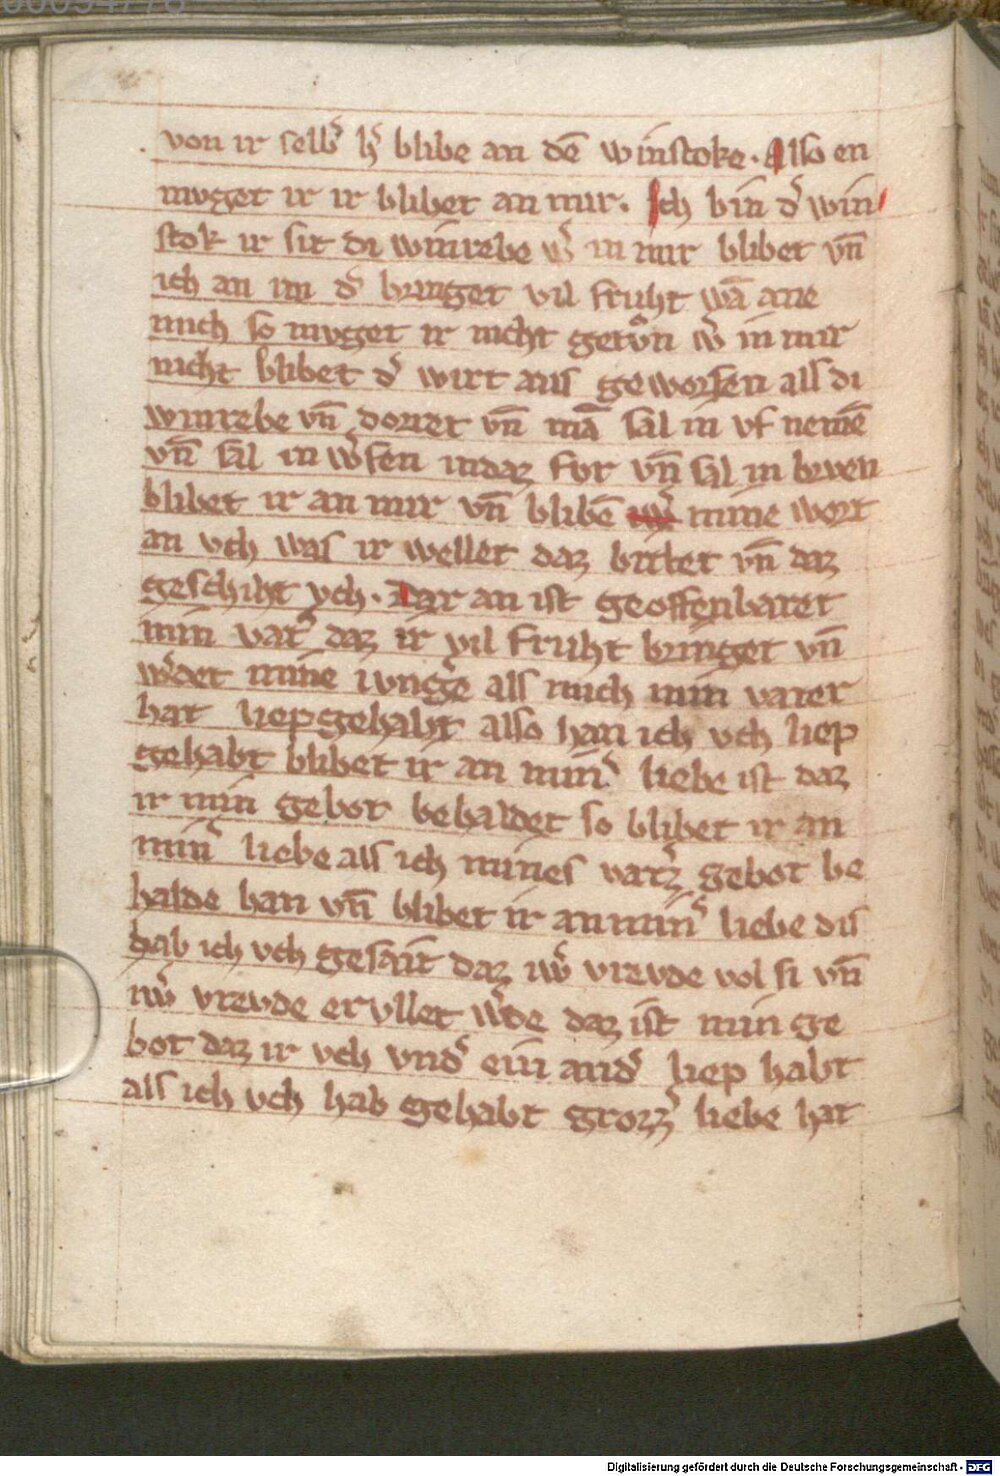 von ir selb͛ h͛ blibe an dē winstoke. Also en
muget ir ir blibet an mir. Ich bin d͛ win
stok ir sit di winrebe w͛ in mir blibet vn̄
ich an im d͛ bringet vil fruht wā ane
mich so muget ir nicht getvͦn w͛ in mir
nicht blibet d͛ wirt aus geworfen als di
winrebe vn̄ dorret vn̄ mā sal in vf nemē
vn̄ sal in w͛fen indaz for vn̄ sal in brven
blibet ir an mir vn̄ blibē mine wort
an vch was ir wellet daz bittet vn̄ daz
geschiht vch. Dar an ist geoffenbaret
min vat͛ daz ir vil fruht bringet vn̄
w͛det mine iung͛e als mich min vater
hat liepgehabt also han ich vch liep
gehabt blibet ir an min͛ liebe ist daz
ir min gebot behaldet so blibet ir an
min͛ liebe als ich mines vat͛z gebot be
halde han vn̄ blibet ir an min͛ liebe dis
hab ich vch gesait daz iw͛ vrevde vol si vn̄
iw͛ vrevde ervllet w͛de daz ist min ge
bot daz ir vch vnd͛ ein and͛ liep habt
als ich vch hab gehabt grozz͛ liebe hat
Digitalisierung gefördert durch die Deutsche Forschungsgemeinschaft - DFG